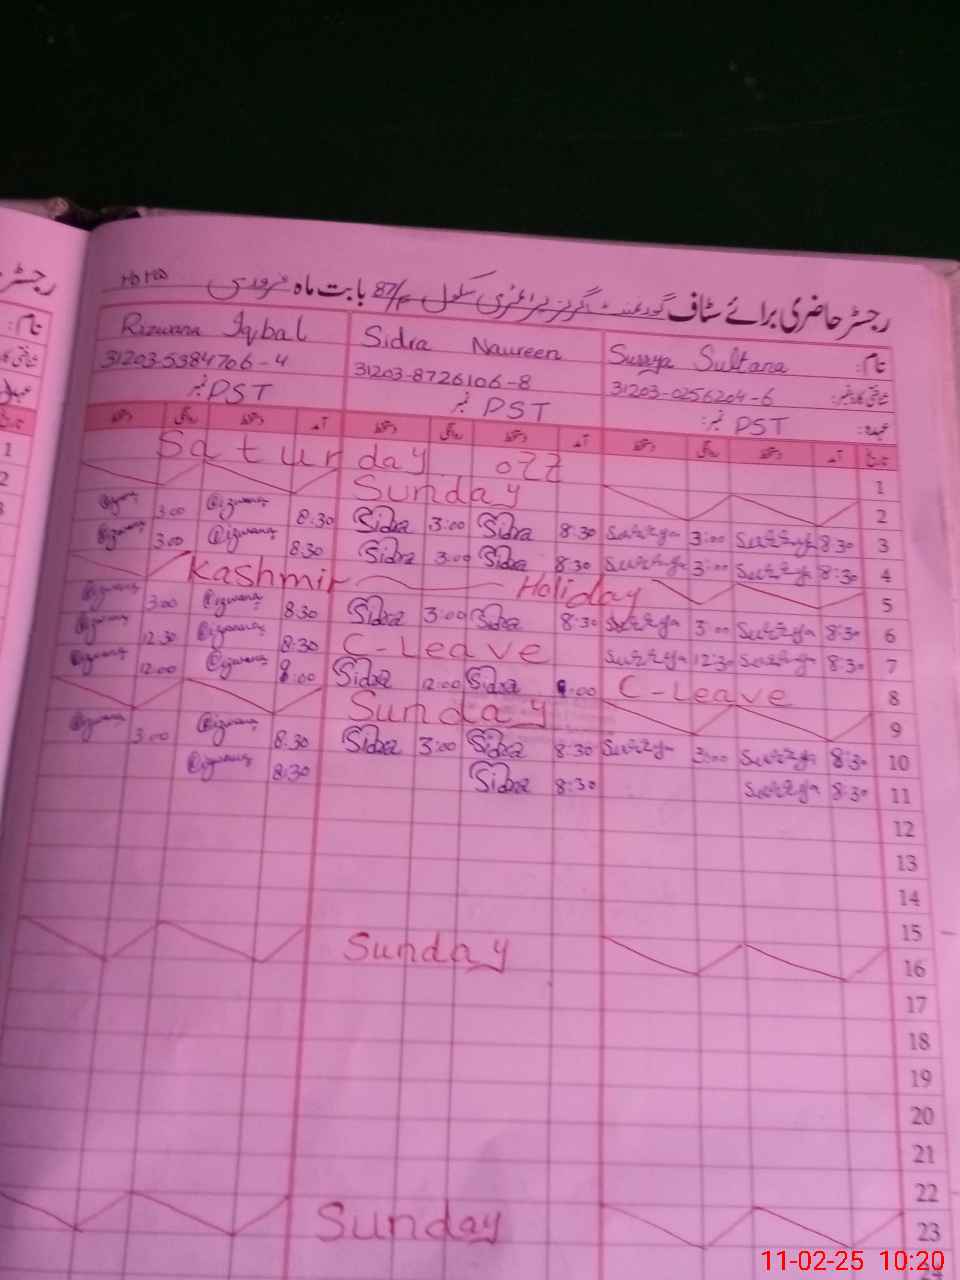 رجسٹر حاضری برائے سٹاف گورنمنٹ گرلز پرائمری سکول 87/م بابت ماہ فروری
نام: Surrya Sultana Sidra Naureen Rizwana Iqbal
31203-0256204-6 31203-8726106-8 31203-5384706-4
عہدہ: PST PST PST
1 Saturday off
2 Sunday
3 8:30 Surrya 3:00 Surrya 8:30 Sidra 3:00 Sidra 8:30 Rizwana 3:00 Rizwana
4 8:30 Surrya 3:00 Surrya 8:30 Sidra 3:00 Sidra 8:30 Rizwana 3:00 Rizwana
5 Kashmir Holiday
6 8:30 Surrya 3:00 Surrya 8:30 Sidra 3:00 Sidra 8:30 Rizwana 3:00 Rizwana
7 8:30 Surrya 12:30 Surrya C-Leave 8:30 Rizwana 12:30 Rizwana
8 C-Leave Sidra 12:00 Sidra 8:00 Rizwana 12:00 Rizwana
9 Sunday
10 8:30 Surrya 3:00 Surrya 8:30 Sidra 3:00 Sidra 8:30 Rizwana 3:00 Rizwana
11 8:30 Surrya 8:30 Sidra 8:30 Rizwana
12
13
14
15
16 Sunday
17
18
19
20
21
22
23 Sunday
11-02-25 10:20